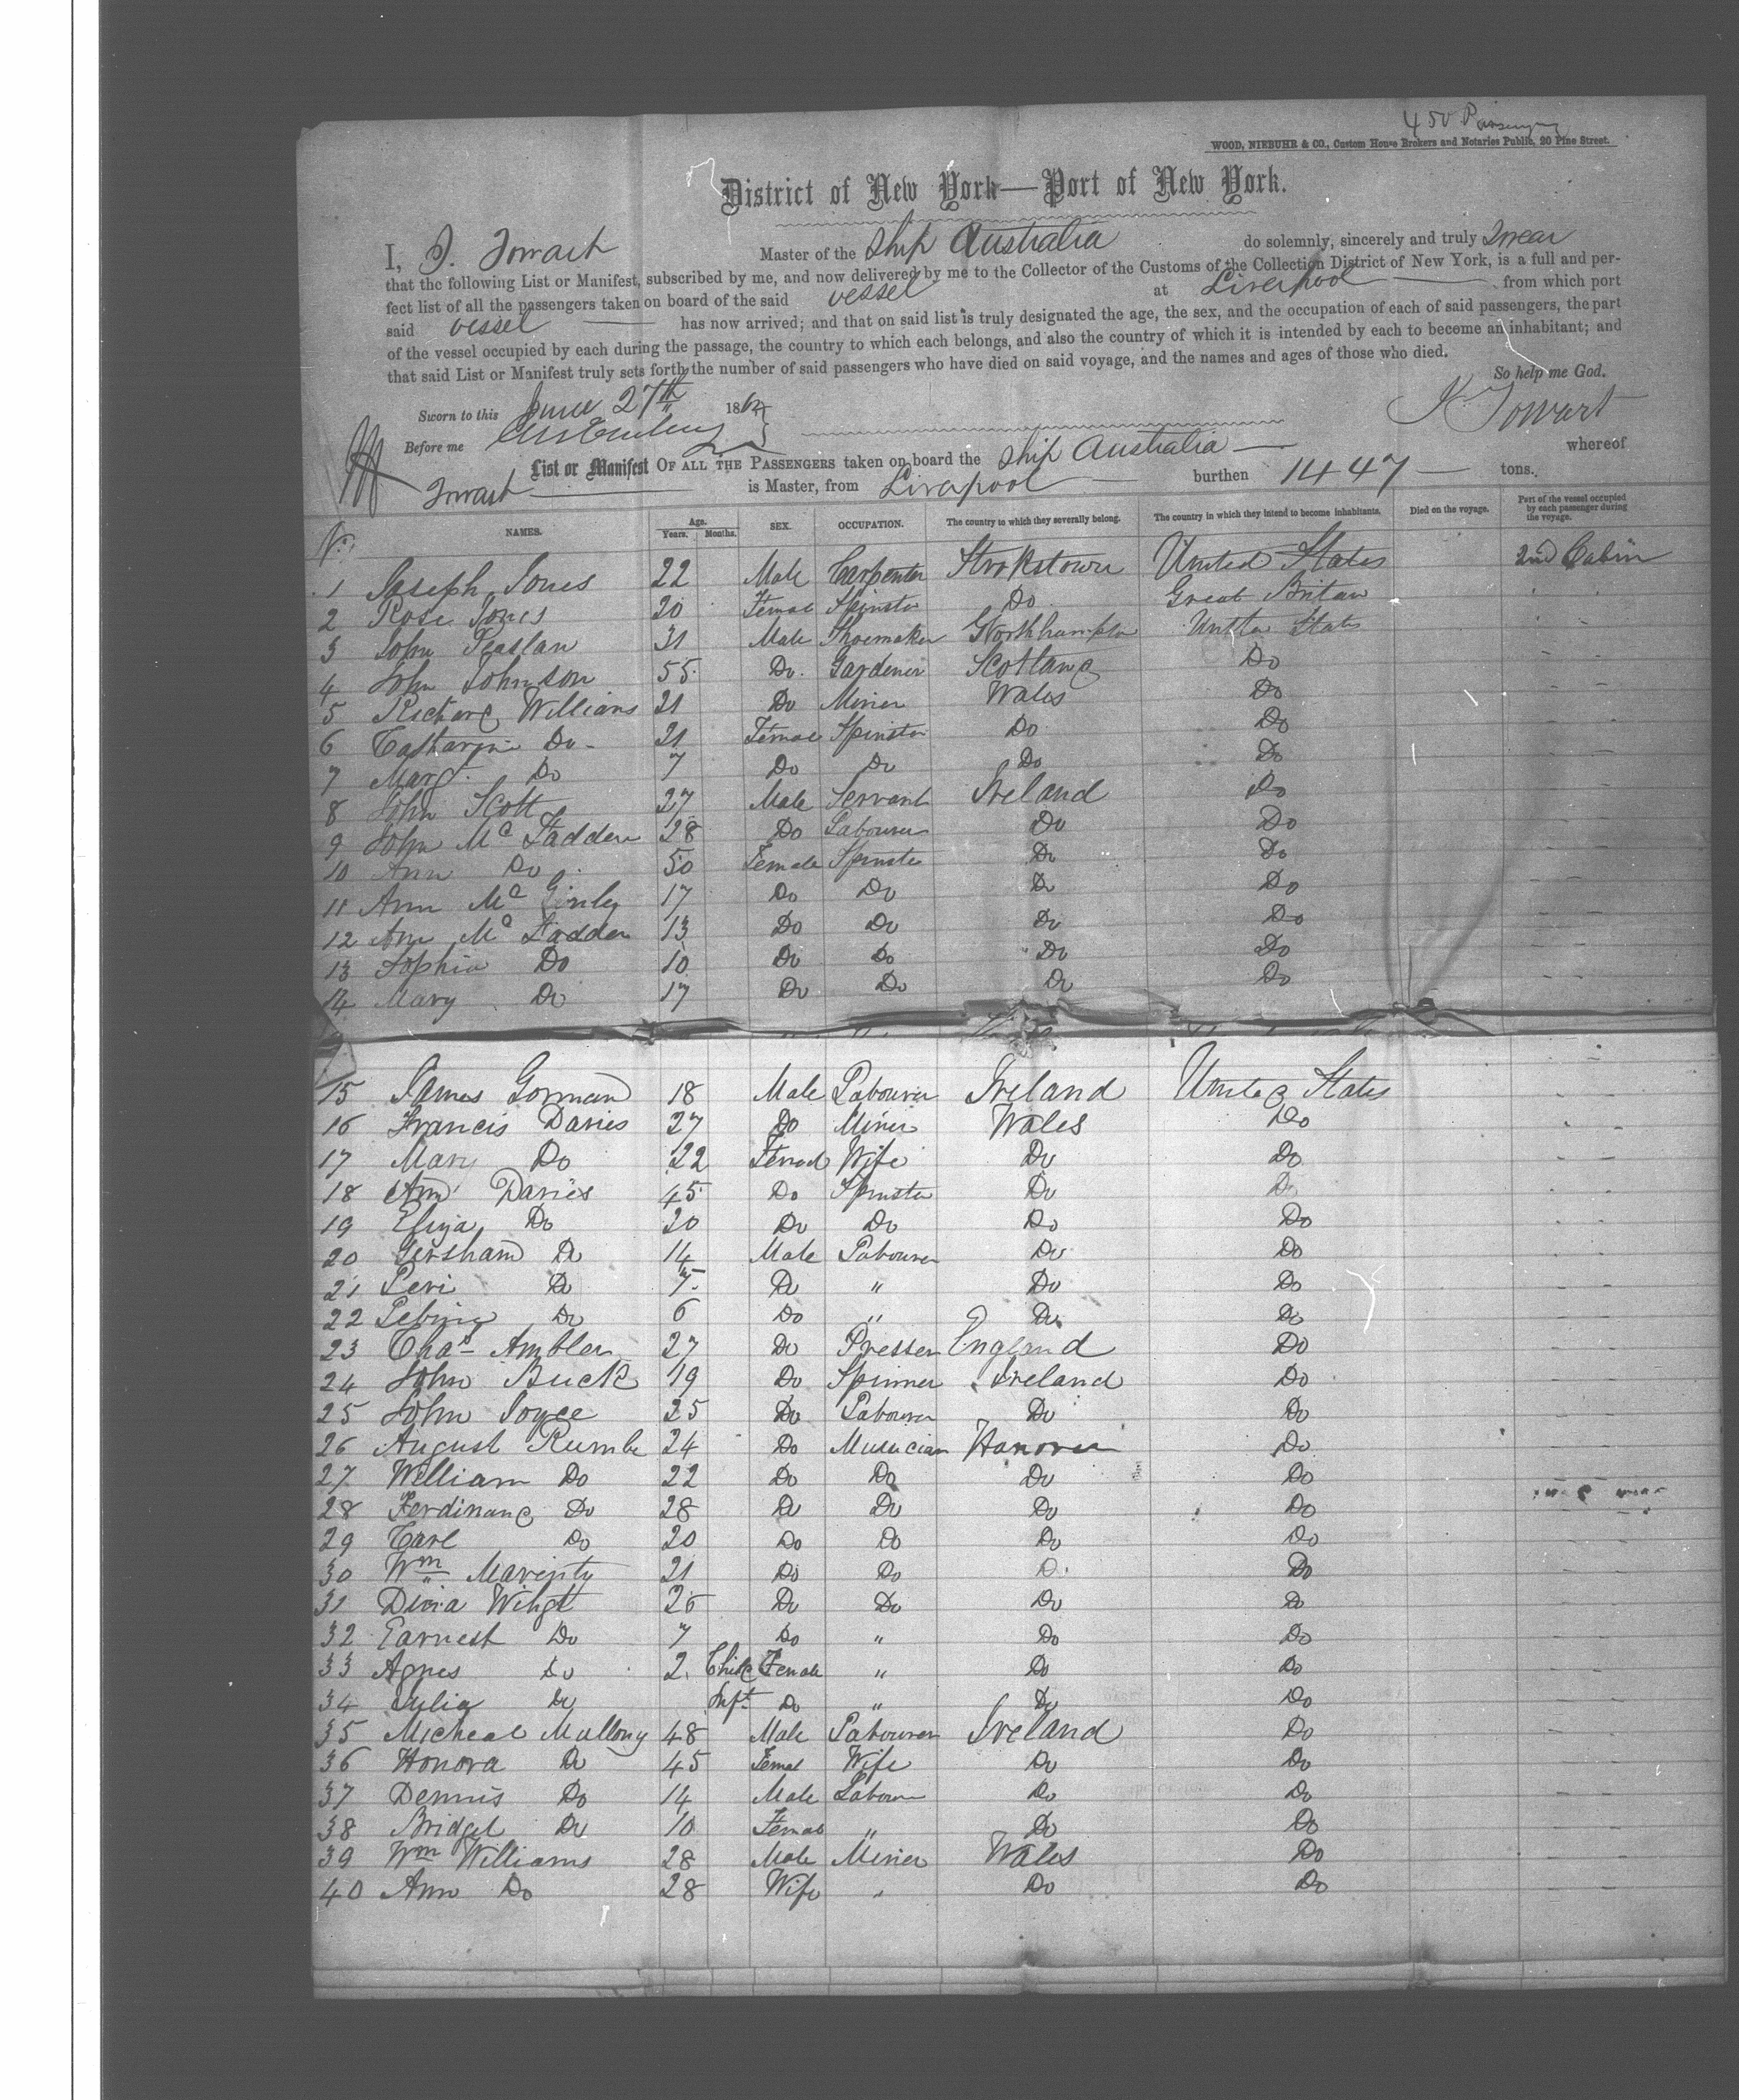 450 Passengers
WOOD, NIEBUHR & CO., Custom House Brokers and Notaries Public, 20 Pine Street.
District of New York—Port of New York.
I, J. Towart Master of the Ship Australia do solemnly, sincerely and truly Swear
that the following List or Manifest, subscribed by me, and now delivered by me to the Collector of the Customs of the Collection District of New York, is a full and per-
fect list of all the passengers taken on board of the said vessel at Liverpool from which port
said vessel has now arrived; and that on said list is truly designated the age, the sex, and the occupation of each of said passengers, the part
of the vessel occupied by each during the passage, the country to which each belongs, and also the country of which it is intended by each to become an inhabitant; and
that said List or Manifest truly sets forth the number of said passengers who have died on said voyage, and the names and ages of those who died.
So help me God.
Sworn to this June 27th 186
J. Towart
Before me
List or Manifest OF ALL THE PASSENGERS taken on board the Ship Australia whereof
Towart is Master, from Liverpool burthen 1447 tons.
No. NAMES. Age. Years. Months. SEX. OCCUPATION. The country to which they severally belong. The country in which they intend to become inhabitants. Died on the voyage. Part of the vessel occupied by each passenger during the voyage.
1 Joseph Jones 22 Male Carpenter Strokstown United States 2nd Cabin
2 Rose Jones 20 Female Spinster Do Great Britain
3 John 31 Male Shoemaker Northhampton United States
4 John Johnson 55 Do Gardener Scotland Do
5 Richard Williams 21 Do Miner Wales Do
6 Catharine Do 21 Female Spinster Do Do
7 Margt. Do 7 Do Do Do Do
8 John Scott 27 Male Servant Ireland Do
9 John McFadden 28 Do Labourer Do Do
10 Ann Do 50 Female Spinster Do Do
11 Ann McGinley 17 Do Do Do Do
12 Ann McFadden 13 Do Do Do Do
13 Sophia Do 10 Do Do Do Do
14 Mary Do 17 Do Do Do Do
15 James Gorman 18 Male Labourer Ireland United States
16 Francis Davies 27 Do Miner Wales Do
17 Mary Do 22 Female Wife Do Do
18 Ann Davies 45 Do Spinster Do Do
19 Eliza Do 20 Do Do Do Do
20 Gersham Do 14 Male Labourer Do Do
21 Levi Do 7 Do " Do Do
22 Do 6 Do " Do Do
23 Chas Ambler 27 Do Presser England Do
24 John Buck 19 Do Spinner Ireland Do
25 John Joyce 25 Do Labourer Do Do
26 August Rumbe 24 Do Musician Hanover Do
27 William Do 22 Do Do Do Do
28 Ferdinand Do 28 Do Do Do Do
29 Carl Do 20 Do Do Do Do
30 Wm 21 Do Do Do Do
31 26 Do Do Do Do
32 Earnest Do 7 Do " Do Do
33 Agnes Do 2 Child Female " Do Do
34 Julia Do Inft Do " Do Do
35 Micheal Mullony 48 Male Labourer Ireland Do
36 Honora Do 45 Female Wife Do Do
37 Dennis Do 14 Male Labourer Do Do
38 Bridget Do 10 Female " Do Do
39 Wm Williams 28 Male Miner Wales Do
40 Ann Do 28 Wife " Do Do